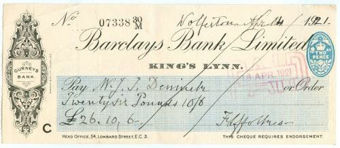 No 07338 30/M Wolferton Apr 14 1921
Barclays Bank Limited
KING'S LYNN.
GURNEY'S
BANK
TWO PENCE
APR 1921
Pay Mr J. J. or Order
Twenty six Pounds 10/6
£26. 10. 6
C
HEAD OFFICE, 54, LOMBARD STREET, E.C.3. THIS CHEQUE REQUIRES ENDORSEMENT.